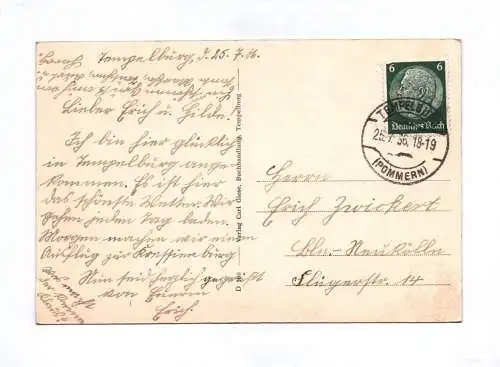 Tempelburg, d. 25. 7. 36.
Lieber Erich u. Hilde!
Ich bin hier glücklich
in Tempelburg ange-
kommen. Es ist hier
das schönste Wetter. Wir
gehen jeden Tag baden.
Morgen machen wir einen
Ausflug zur
Nun seid herzlich gegrüßt
von Eurem
Erich.
Verlag Carl Giese, Buchhandlung, Tempelburg
6 6
Deutsches Reich
TEMPELBURG
25.7.36. 18-19
(POMMERN)
Herrn
Erich Zwickert
Bln.-Neukölln
Flügerstr. 14